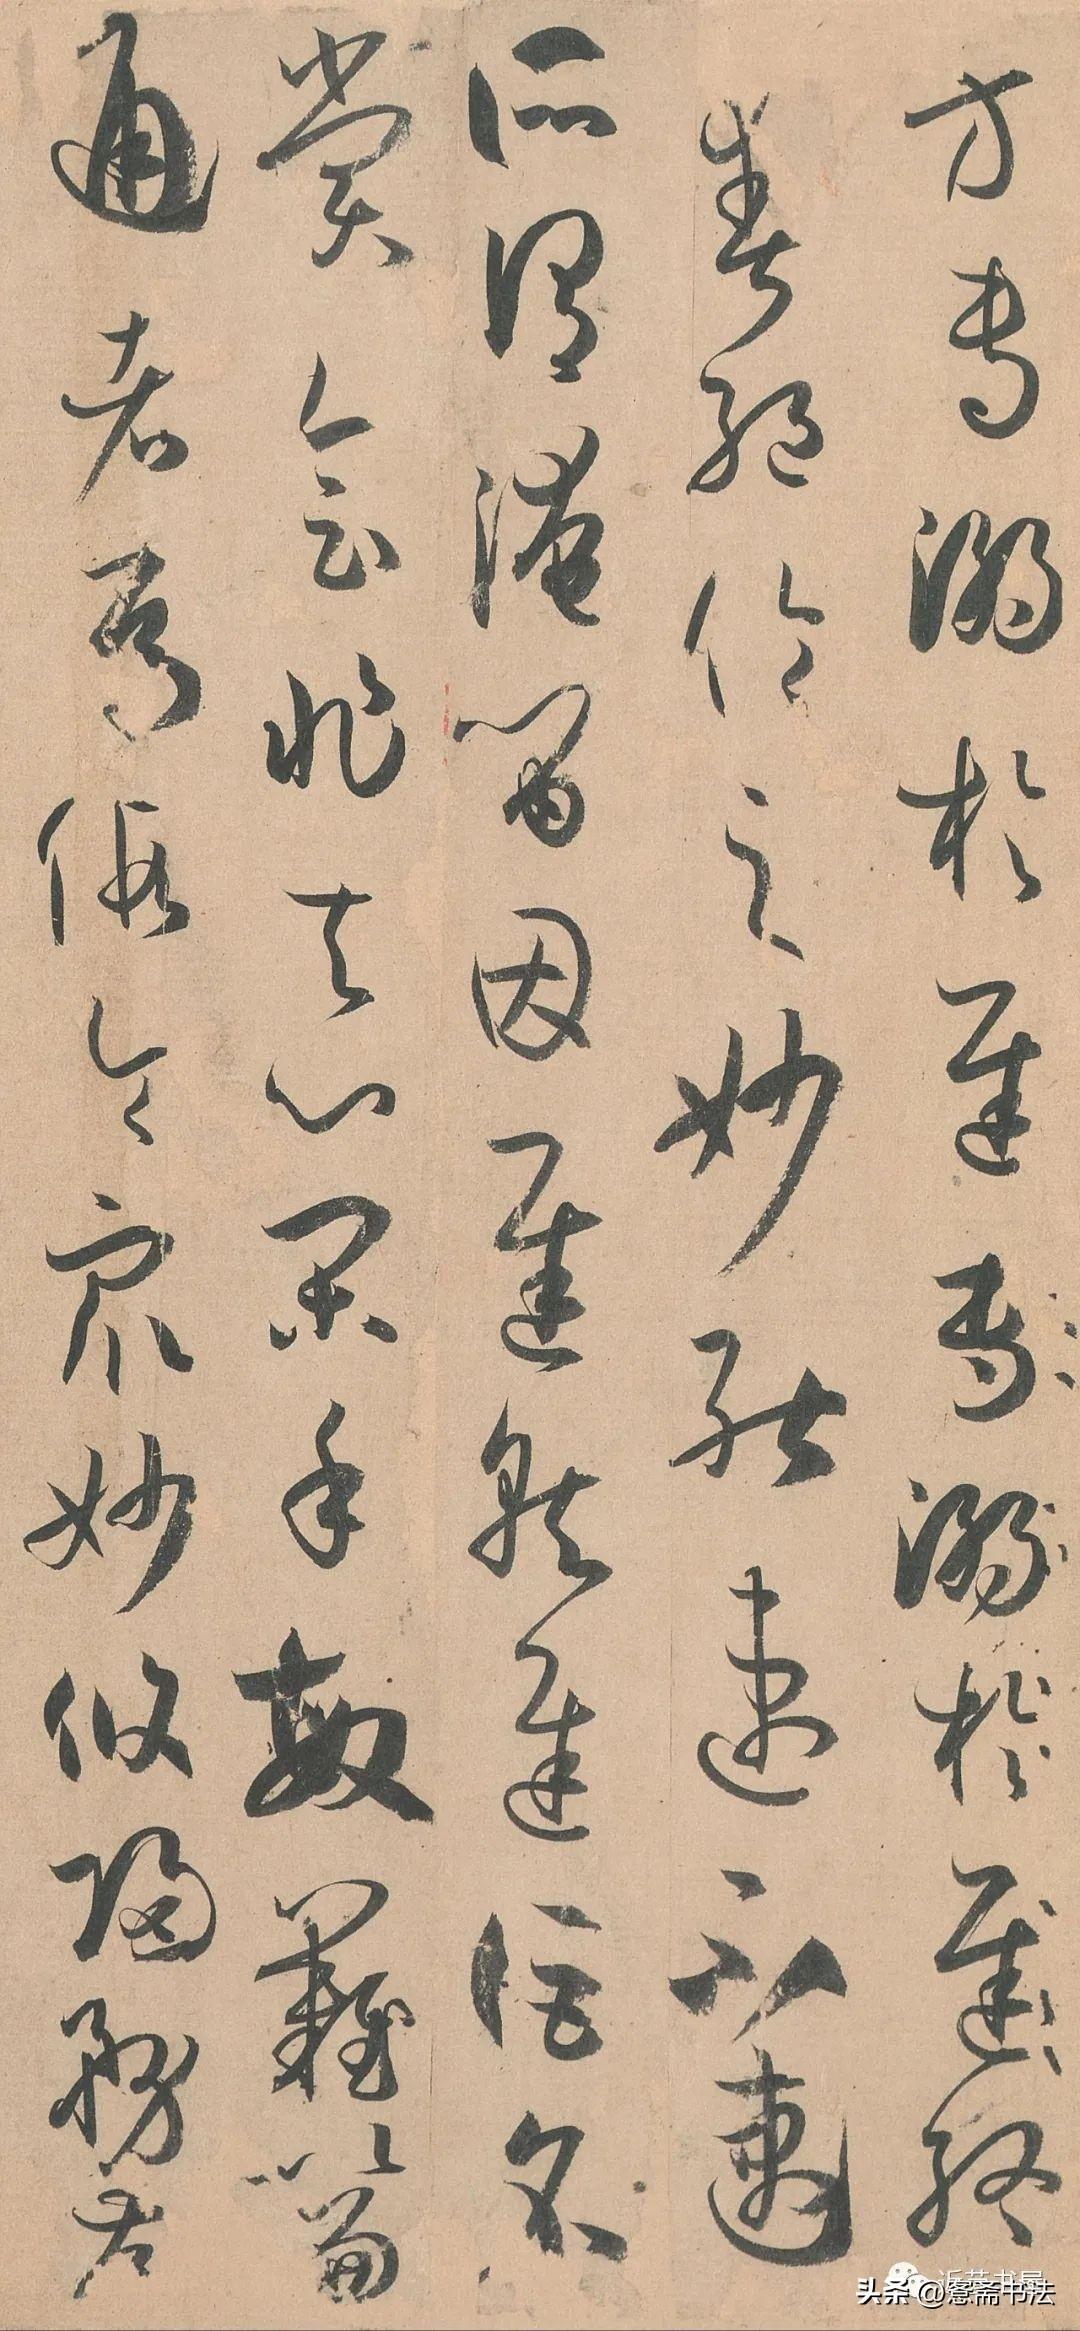 方專溺於遲專溺於遲終
爽絕倫之妙能速不速
所謂淹留因遲就遲詎名
賞會非其心閑手敏難以兼
通者焉假令衆妙攸歸務存
头条 @愙斋书法